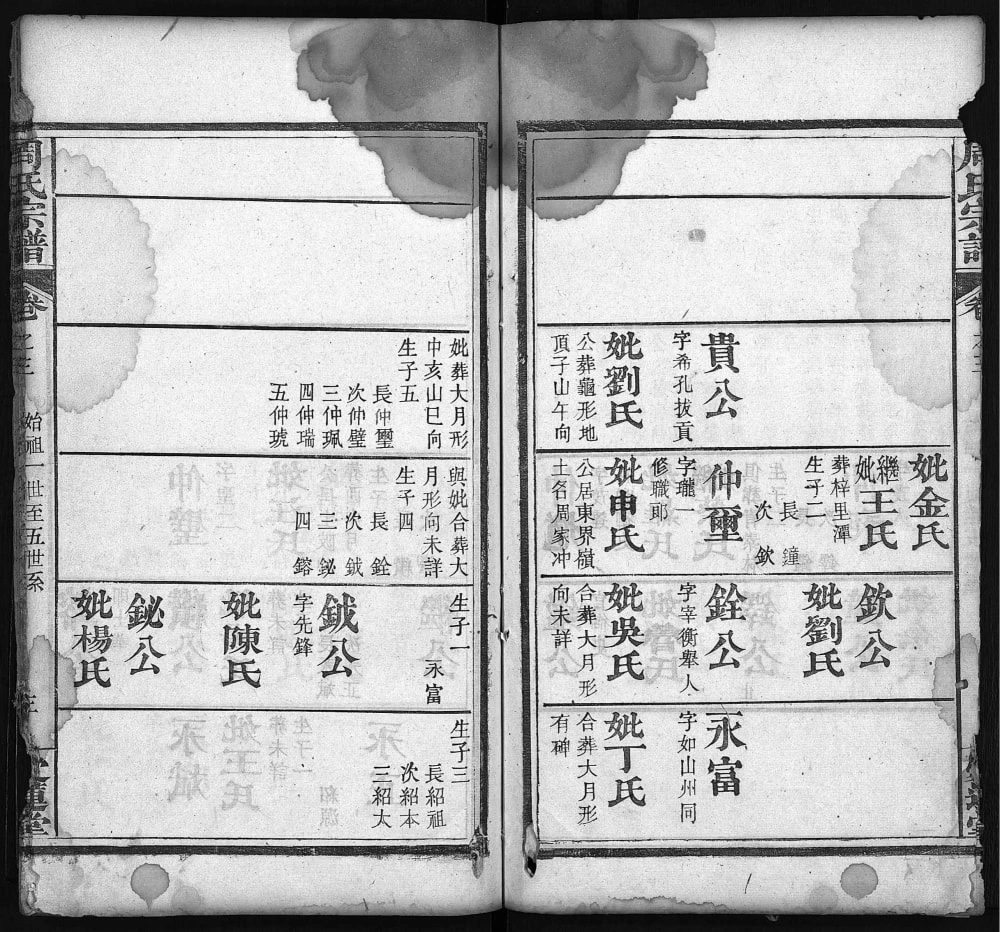 周氏宗譜
卷之三
貴公
字希孔拔貢
妣劉氏
公葬龜形地
頂子山午向
妣金氏
繼妣王氏
葬梓里潭
生子二
長鐘
次欽
仲爾
字瓏一
修職郎
妣申氏
公居東界嶺
土名周家冲
欽公
妣劉氏
銓公
字宰衡舉人
妣吳氏
合葬大月形
向未詳
永富
字如山州同
妣丁氏
合葬大月形
有碑
妣葬大月形
中亥山巳向
生子五
長仲璽
次仲璧
三仲珮
四仲瑞
五仲琥
與妣合葬大
月形向未詳
生子四
長銓
次鉞
三鉍
四鎔
生子一
永富
鉞公
字先鋒
妣陳氏
鉍公
妣楊氏
生子三
長紹祖
次紹本
三紹大
周氏宗譜
卷之三
始祖一世至五世系